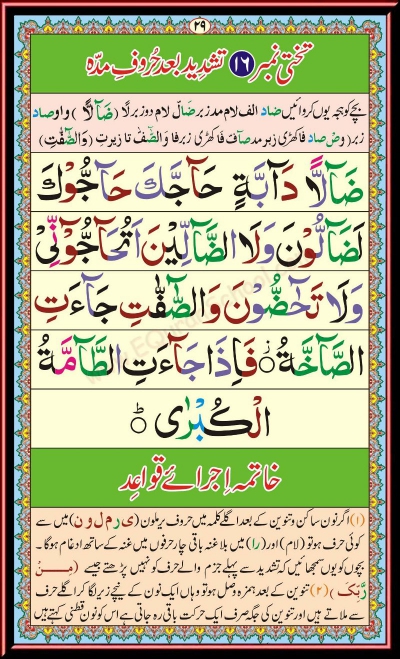 ۲۹
تختی نمبر ۱۶ تشدید بعد حُروفِ مدّہ
بچے کو ہجے یوں کروائیں ضاد الف لام مد زبر ضَآلّ لام دو زبر لًّا (ضَآلًّا) واو صاد
زبر (وَصّ صاد فا کھڑی زبر مد صٓافّ فا کھڑی زبر فا وَالصّٰٓفّٰ تا زیر تِ (وَالصّٰٓفّٰتِ)
ضَآلًّا دَآبَّةٍ حَآجَّكَ حَآجُّوْكَ
لَضَآلُّوْنَ وَلَا الضَّآلِّيْنَ اَتُحَآجُّوْٓنِّيْ
وَلَا تَحٰٓضُّوْنَ وَالصّٰٓفّٰتِ جَآءَتِ
الصَّآخَّةُ فَاِذَا جَآءَتِ الطَّآمَّةُ
الْكُبْرٰى
خاتمہ اِجرائے قواعِد
(۱) اگر نون ساکن و تنوین کے بعد اگلے کلمہ میں حروف یرملون (ی ر م ل و ن) میں سے
کوئی حرف ہو تو (لام) اور (را) میں بلا غنہ باقی چار حرفوں میں غنہ کے ساتھ ادغام ہوگا۔
بچوں کو یوں سمجھائیں کہ تشدید سے پہلے جزم والے حرف کو نہیں پڑھتے جیسے (مِنْ
رَّبِّكَ) (۲) تنوین کے بعد ہمزہ وصل ہو تو وہاں ایک نون کے نیچے زیر لگا کر اگلے حرف
سے ملاتے ہیں اور تنوین کی جگہ صرف ایک حرکت باقی رہ جاتی ہے اس کو نون قطنی کہتے ہیں